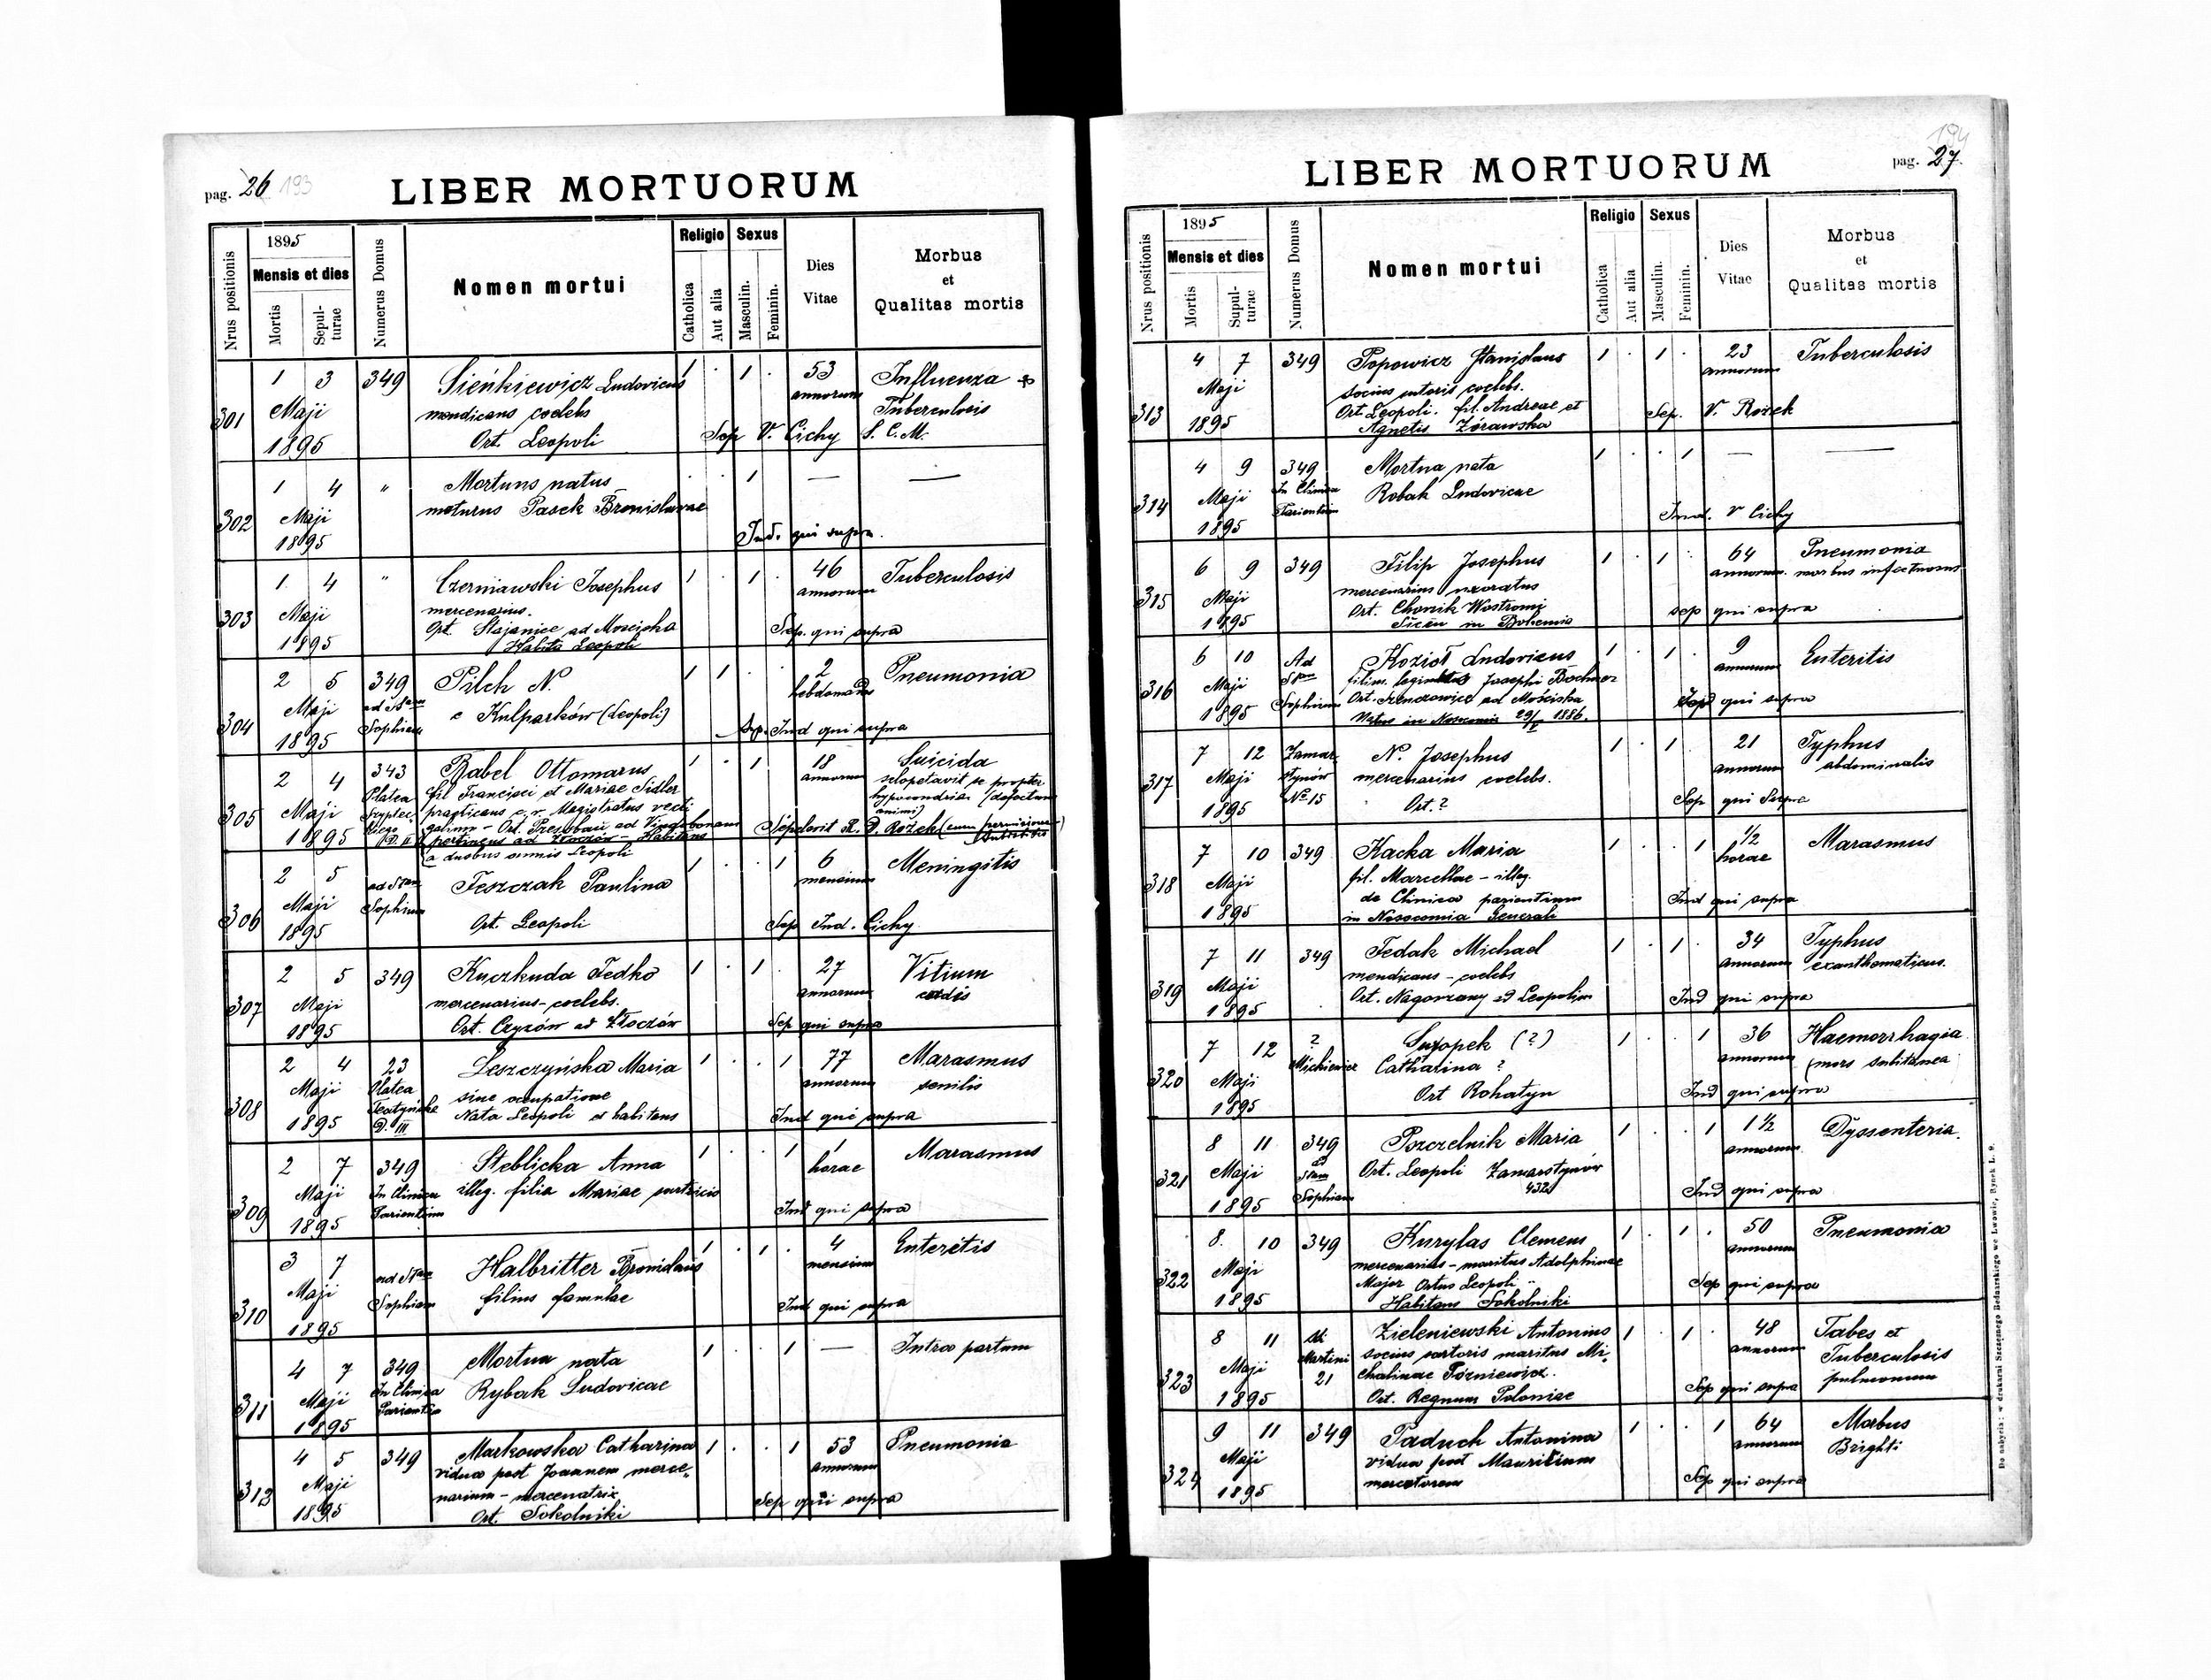 pag. 26 193
LIBER MORTUORUM
Nrus positionis
1895
Mensis et dies
Mortis
Sepul-
turae
Numerus Domus
Nomen mortui
Religio
Catholica
Aut alia
Sexus
Masculin.
Feminin.
Dies
Vitae
Morbus
et
Qualitas mortis
301
1 3
Maji
1895
349
Sieńkiewicz Ludovicus
mendicans coelebs
Ort. Leopoli
1 . 1 .
53
annorum
Influenza +
Tuberculosis
Sep V. Cichy S. C. M.
302
1 4
Maji
1895
"
Mortuus natus
maturus Pasek Bronislavae
. . 1
—
—
Ind. qui supra.
303
1. 4
Maji
1895
"
Czerniawski Josephus
mercenarius.
Ort. Stajanice ad Mosciska
Habita Leopoli
1 . 1 .
46
annorum
Tuberculosis
Sep. qui supra
304
2 5
Maji
1895
349
ad Stam
Sophiam
Pilch N.
e Kulparków (Leopoli)
1 1 .
2
hebdomad
Pneumonia
Ind qui supra
305
2 4
Maji
1895
343
Platea
Babel Ottomarus
fil Francisci et Mariae Sidler
practicans c. r. Magistratus vecti
pertinens ad Złoczów - Habitans
a duobus annis Leopoli
1 . 1
18
annorum
Suicida
sclopetavit se propter
hypocondria (defectum
animi)
Sepelevit R. D. Rożek (cum permissione
306
2 5
Maji
1895
ad Stam
Sophiam
Teszczak Paulina
Ort. Leopoli
1 . . 1
6
mensium
Meningitis
Sep Ind. Cichy
307
2 5
Maji
1895
349
Kuczkuda Fedko
mercenarius - coelebs.
Ort. Czyżów ad Złoczów
1 . 1 .
27
annorum
Vitium
cordis
Sep qui supra
308
2 4
Maji
1895
23
Platea
Teatyńska
D. III
Leszczyńska Maria
sine occupatione
Nata Leopoli et habitans
1 . . 1
77
annorum
Marasmus
senilis
Ind qui supra
309
2 7
Maji
1895
349
In Clinica
Parientium
Steblicka Anna
illeg. filia Mariae sartricis
1 . . 1
1
horae
Marasmus
Ind qui supra
310
3 7
Maji
1895
ad Stam
Sophiam
Halbritter Bronislaus
filius famulae
1 . 1 .
4
mensium
Enteritis
Ind qui supra
311
4 7
Maji
1895
349
In Clinica
Parientium
Mortua nata
Rybak Ludovicae
1 . . 1
—
Intra partum
312
4 5
Maji
1895
349
Markowska Catharina
vidua post Joannem merce-
narium - mercenatrix
Ort. Sokolniki
1 . . 1
53
annorum
Pneumonia
Sep qui supra
194
pag. 27.
LIBER MORTUORUM
Nrus positionis
1895
Mensis et dies
Mortis
Supul-
turae
Numerus Domus
Nomen mortui
Religio
Catholica
Aut alia
Sexus
Masculin.
Feminin.
Dies
Vitae
Morbus
et
Qualitas mortis
313
4 7
Maji
1895
349
Popowicz Stanislaus
socius sutoris coelebs.
Ort. Leopoli. fil. Andreae et
Agnetis Żórawska
1 . 1 .
23
annorum
Tuberculosis
Sep. V. Rożek
314
4 9
Maji
1895
349
In Clinica
Parientium
Mortua nata
Robak Ludovicae
1 . . 1
—
—
Ind. V Cichy
315
6 9
Maji
1895
349
Filip Josephus
mercenarius uxoratus
Ort. Chonik Wostromi
Sičcu in Bohemia
1 . 1 .
64
annorum.
Pneumonia
morbus infectuosus
sep qui supra
316
6 10
Maji
1895
Ad
Stam
Sophiam
Kozioł Ludovicus
filius legimitus Josephi Bochmer
ad Mościska
Natus in Nosocomio 29/5 1886.
1 . 1 .
9
annorum
Enteritis
qui supra
317
7 12
Maji
1895
Zamar-
stynów
No 15
N. Josephus
mercenarius coelebs.
Ort.?
1 . 1
21
annorum
Typhus
abdominalis
Sep qui Supra
318
7 10
Maji
1895
349
Kacka Maria
fil. Marcellae - illeg.
de Clinica parientium
in Nosocomio Generali
1 . . 1
1/2
horae
Marasmus
Ind qui supra
319
7 11
Maji
1895
349
Fedak Michael
mendicans - coelebs
Ort. Nagorzany ad Leopolim
1 . 1 .
34
annorum
Typhus
exanthematicus.
Ind qui supra
320
7 12
Maji
1895
?
Mickiewicz
Suxopek (?)
Catharina ?
Ort Rohatyn
1 . . 1
36
annorum
Haemorrhagia
(mors subitanea
Ind qui supra
321
8 11
Maji
1895
349
ad
Stam
Sophiam
Pszczelnik Maria
Ort. Leopoli Zamarstynów
432
1 . . 1
1 1/2
annorum.
Dyssenteria.
Ind qui supra
322
8. 10
Maji
1895
349
Kurylas Clemens
mercenarius - maritus Adolphinae
Majer Ortus Leopoli
Habitans Sokolniki
1 . 1 .
50
annorum
Pneumonia
Sep qui supra
323
8 11
Maji
1895
Martini
21
Zieleniewski Antonius
socius sartoris maritus Mi-
chalinae Górniewicz.
Ort. Regnum Poloniae
1 . 1 .
48
annorum
Tabes et
Tuberculosis
pulmonum
Sep qui supra
324
9 11
Maji
1895
349
Paduch Antonina
vidua post Mauritium
mercatorem
1 . . 1
64
annorum
Morbus
Brighti
Sep qui supra
Do nabycia: w drukarni Szczęsnego Bednarskiego we Lwowie, Rynek L. 9.